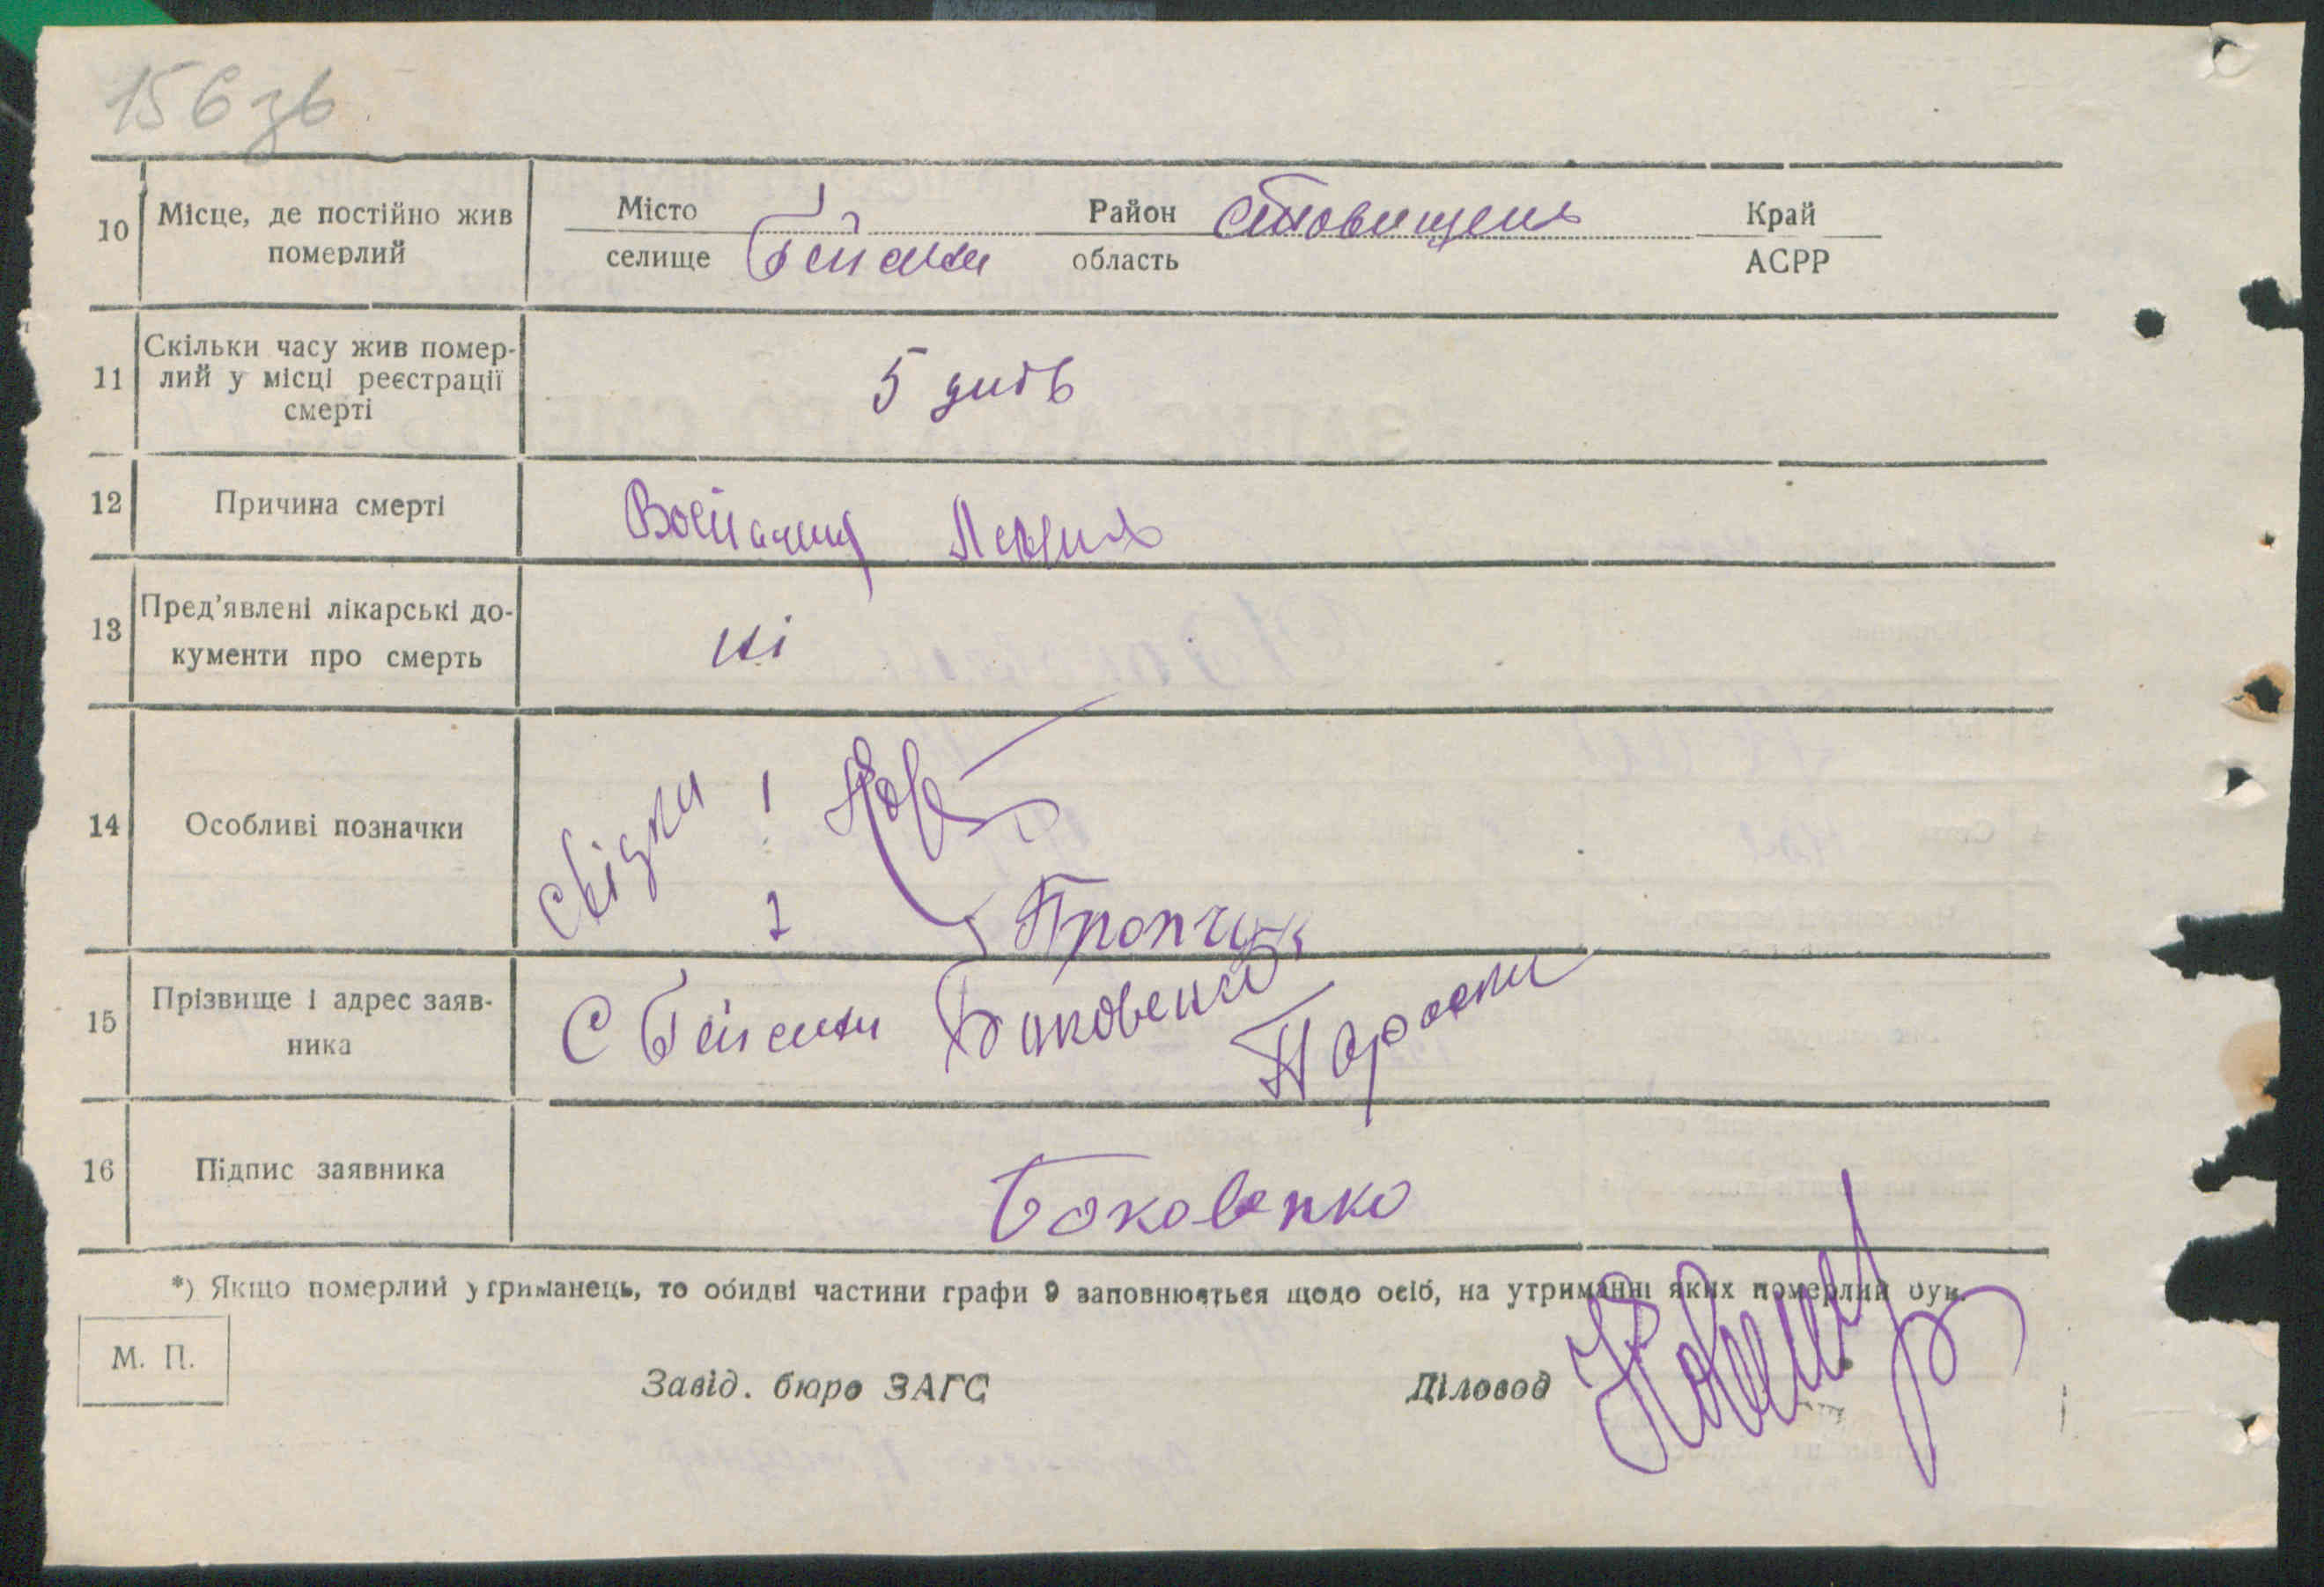 156 зв
10 Місце, де постійно жив померлий
Місто селище Гейсихи Район область Ставищен Край АСРР
11 Скільки часу жив помер-
лий у місці реєстрації
смерті
5 днів
12 Причина смерті
Воспаления Легких
13 Пред'явлені лікарські до-
кументи про смерть
ні
14 Особливі позначки
Свідки 1
2
15 Прізвище і адрес заяв-
ника
С Гейсихи Боковенко
Пороски
16 Підпис заявника
Боковенко
*) Якщо померлий утриманець, то обидві частини графи 9 заповнюється щодо осіб, на утриманні яких померлий був.
М. П.
Завід. бюро ЗАГС Діловод